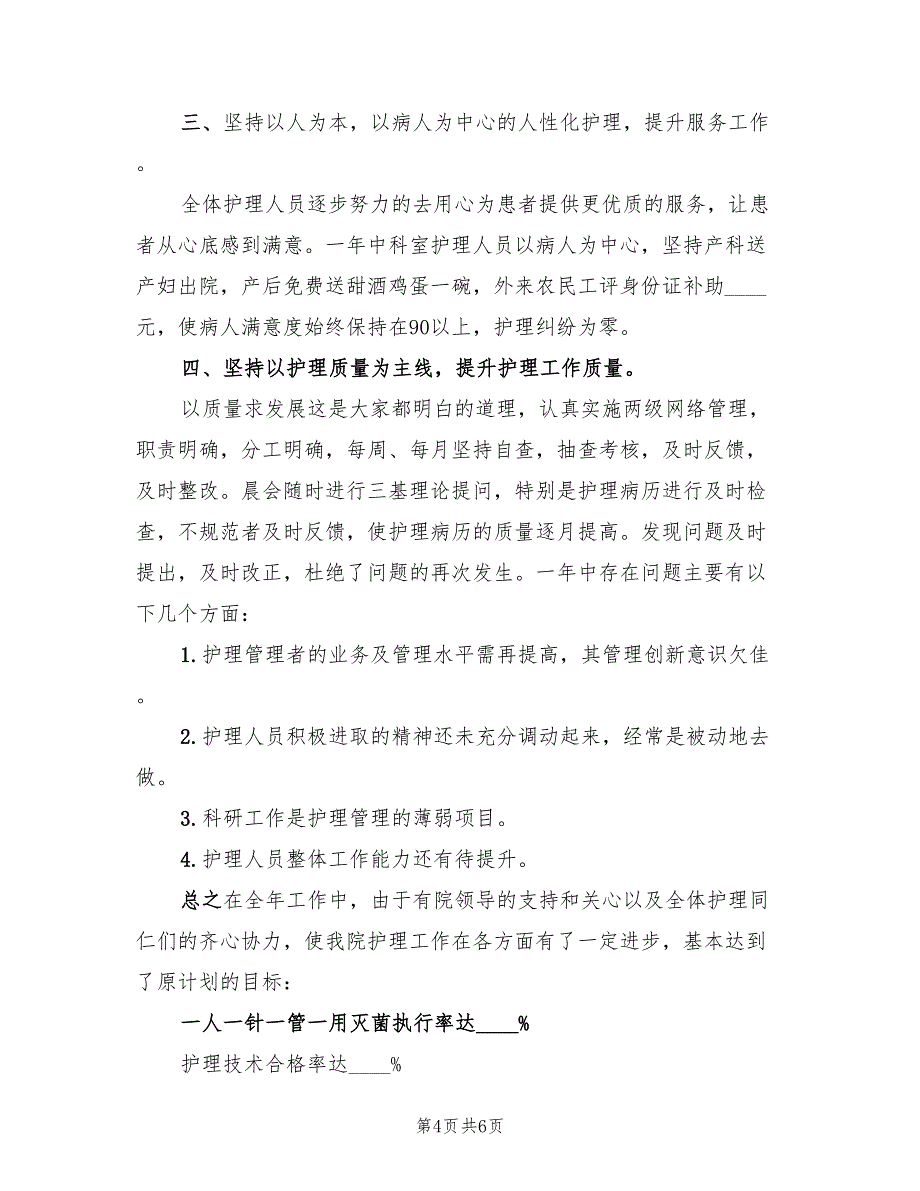 三、坚持以人为本，以病人为中心的人性化护理，提升服务工作
。
全体护理人员逐步努力的去用心为患者提供更优质的服务，让患
者从心底感到满意。一年中科室护理人员以病人为中心，坚持产科送
产妇出院，产后免费送甜酒鸡蛋一碗，外来农民工评身份证补助____
元，使病人满意度始终保持在90以上，护理纠纷为零。
四、坚持以护理质量为主线，提升护理工作质量。
以质量求发展这是大家都明白的道理，认真实施两级网络管理，
职责明确，分工明确，每周、每月坚持自查，抽查考核，及时反馈，
及时整改。晨会随时进行三基理论提问，特别是护理病历进行及时检
查，不规范者及时反馈，使护理病历的质量逐月提高。发现问题及时
提出，及时改正，杜绝了问题的再次发生。一年中存在问题主要有以
下几个方面：
1.护理管理者的业务及管理水平需再提高，其管理创新意识欠佳
。
2.护理人员积极进取的精神还未充分调动起来，经常是被动地去
做。
3.科研工作是护理管理的薄弱项目。
4.护理人员整体工作能力还有待提升。
总之在全年工作中，由于有院领导的支持和关心以及全体护理同
仁们的齐心协力，使我院护理工作在各方面有了一定进步，基本达到
了原计划的目标：
一人一针一管一用灭菌执行率达____%
护理技术合格率达____%
第4页共6页